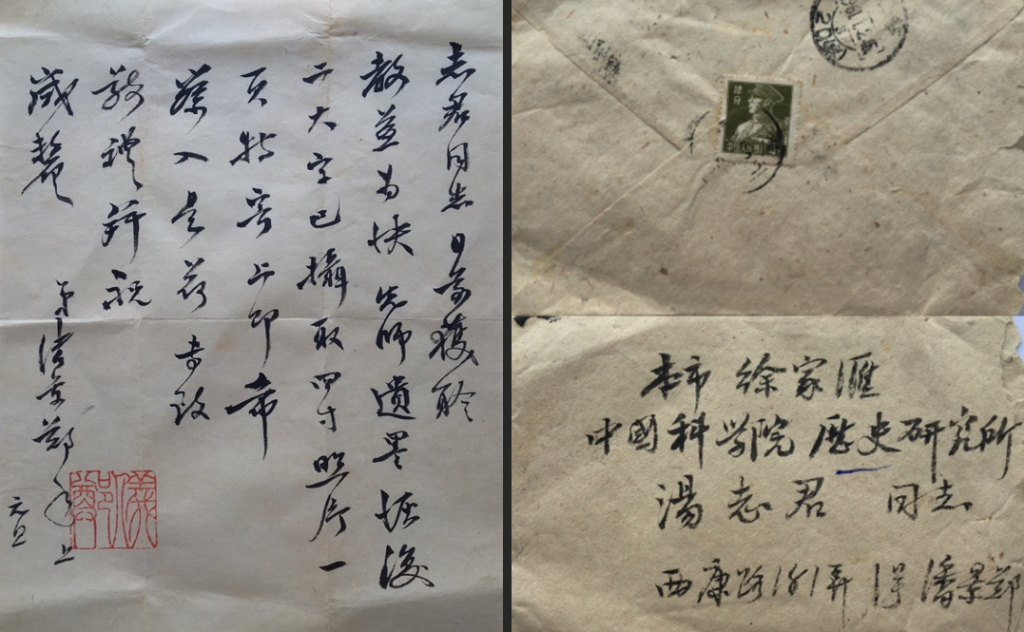 志君同志日前獲聆
教益为快先师遺墨後
二大字已攝取四寸照片一
页特寄上即希
察入是荷专致
敬禮并祝
歲釐
弟潘景鄭上
元旦
本市 徐家匯
中國科学院 歷史研究所
湯志君 同志
西康路181弄1号 潘景鄭